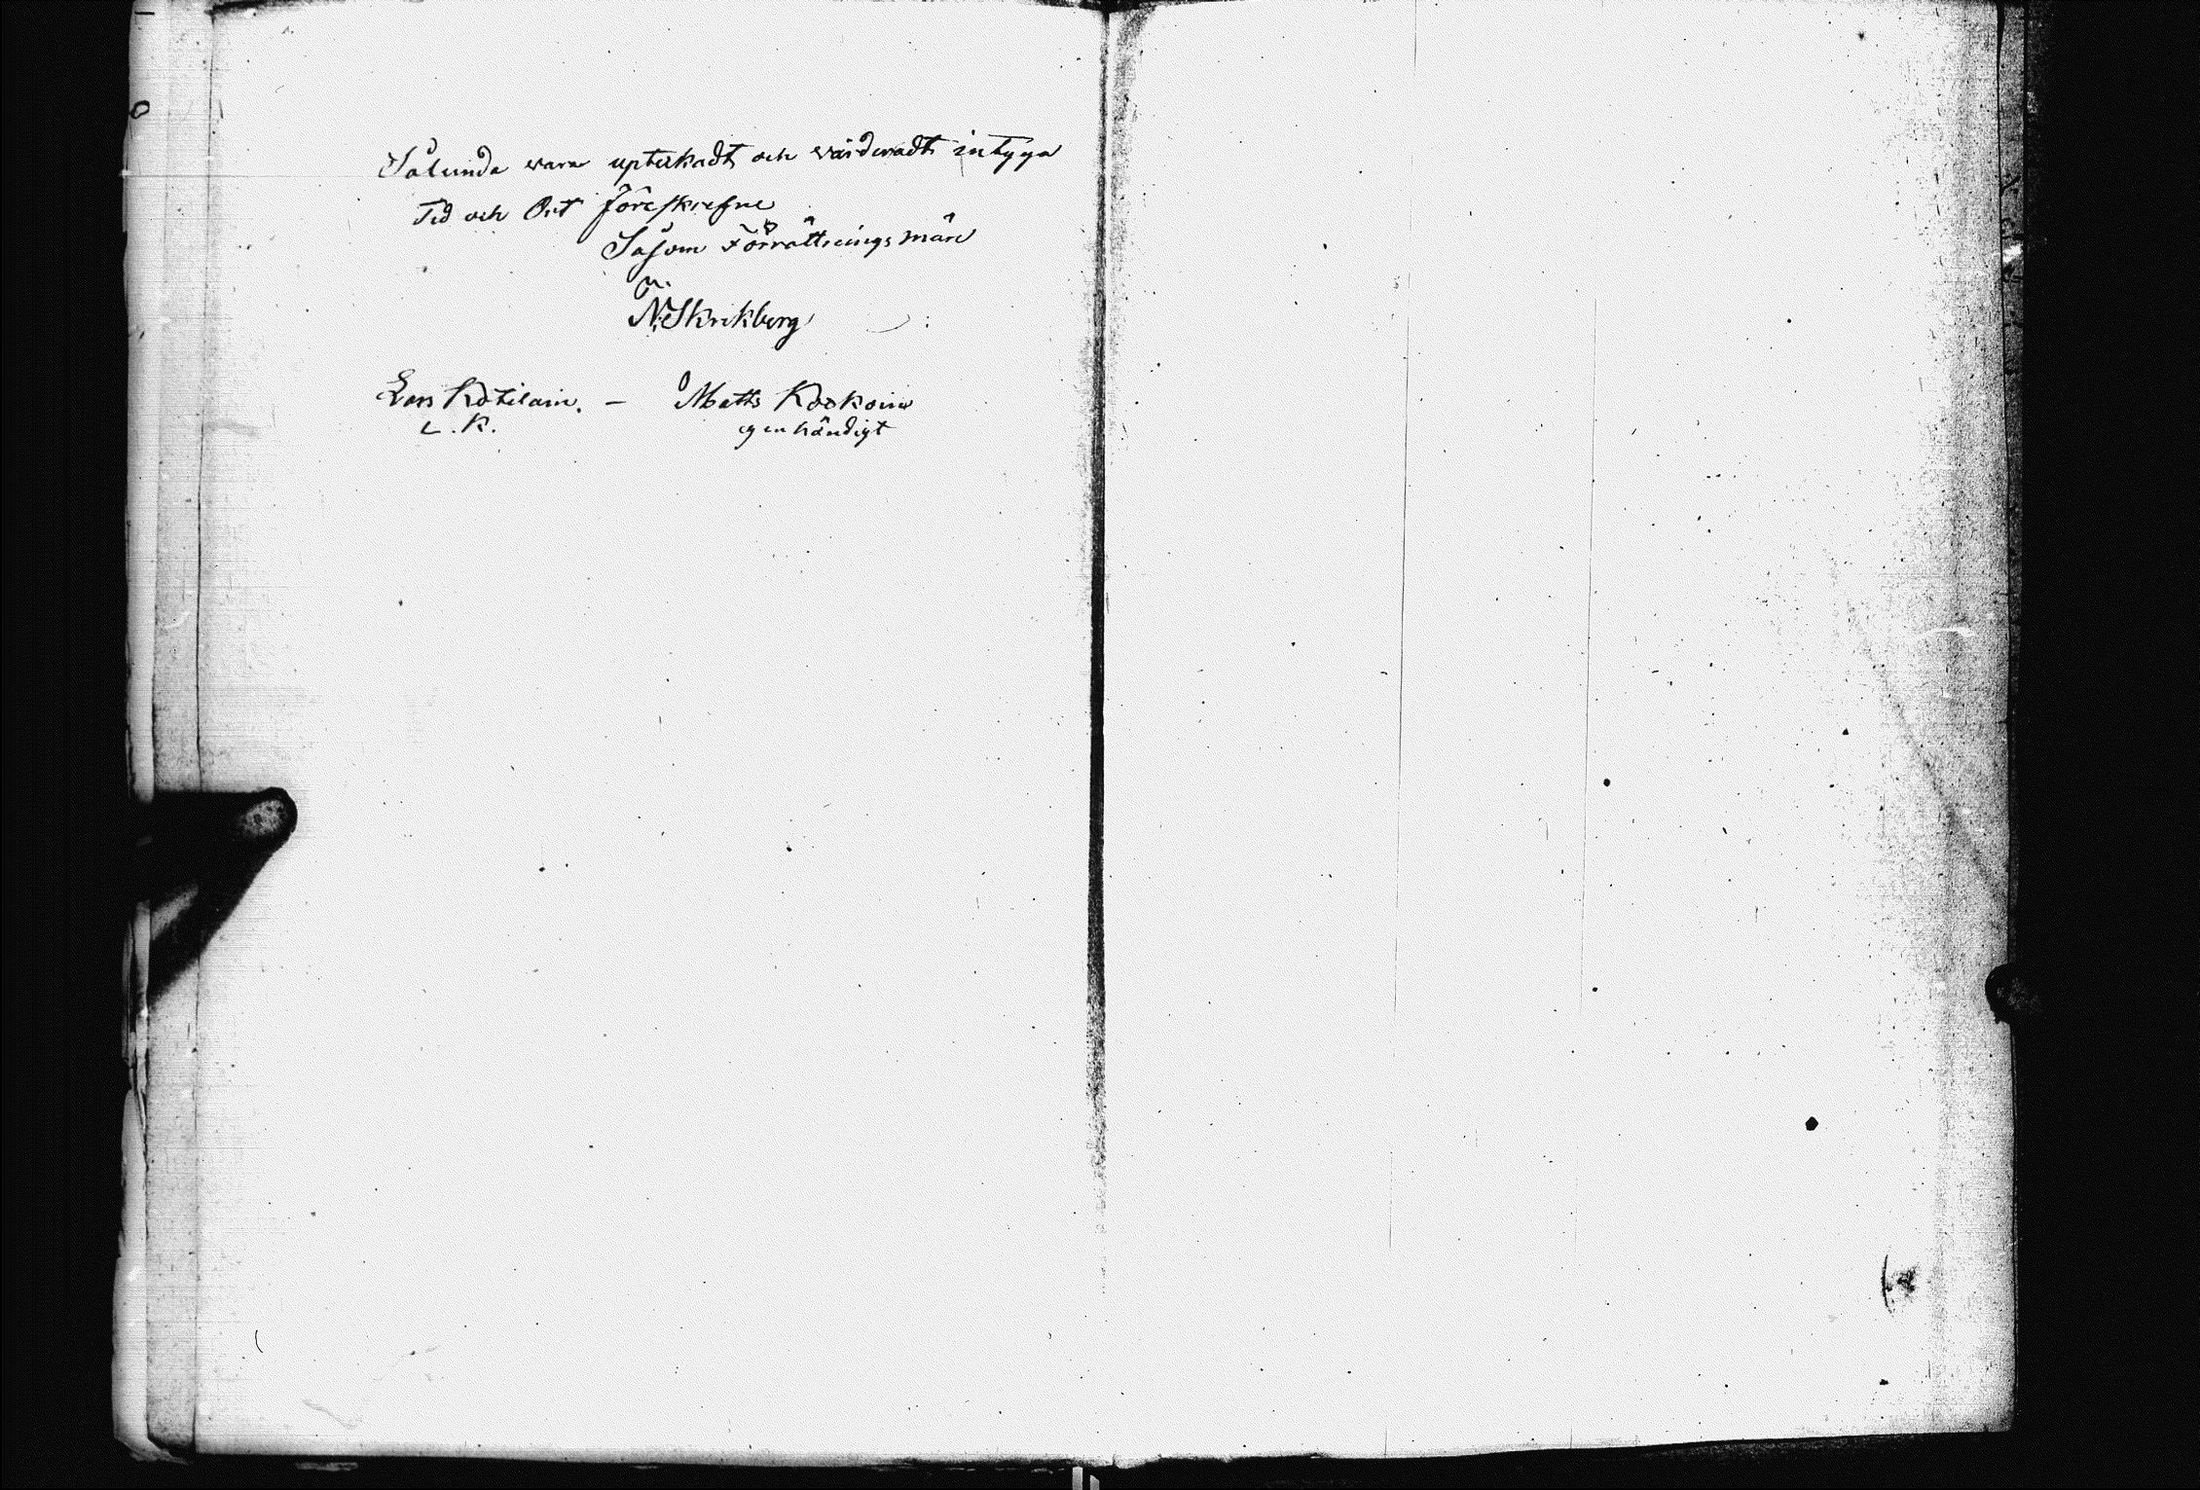 Sålunda vara uptecknadt och värderadt intyga
Tid och Ort föreskrefne
Såsom Förrättningsmän
N: Skrikberg
Lars Kotilain. — Matts Kookoin
L. K. egenhändigt